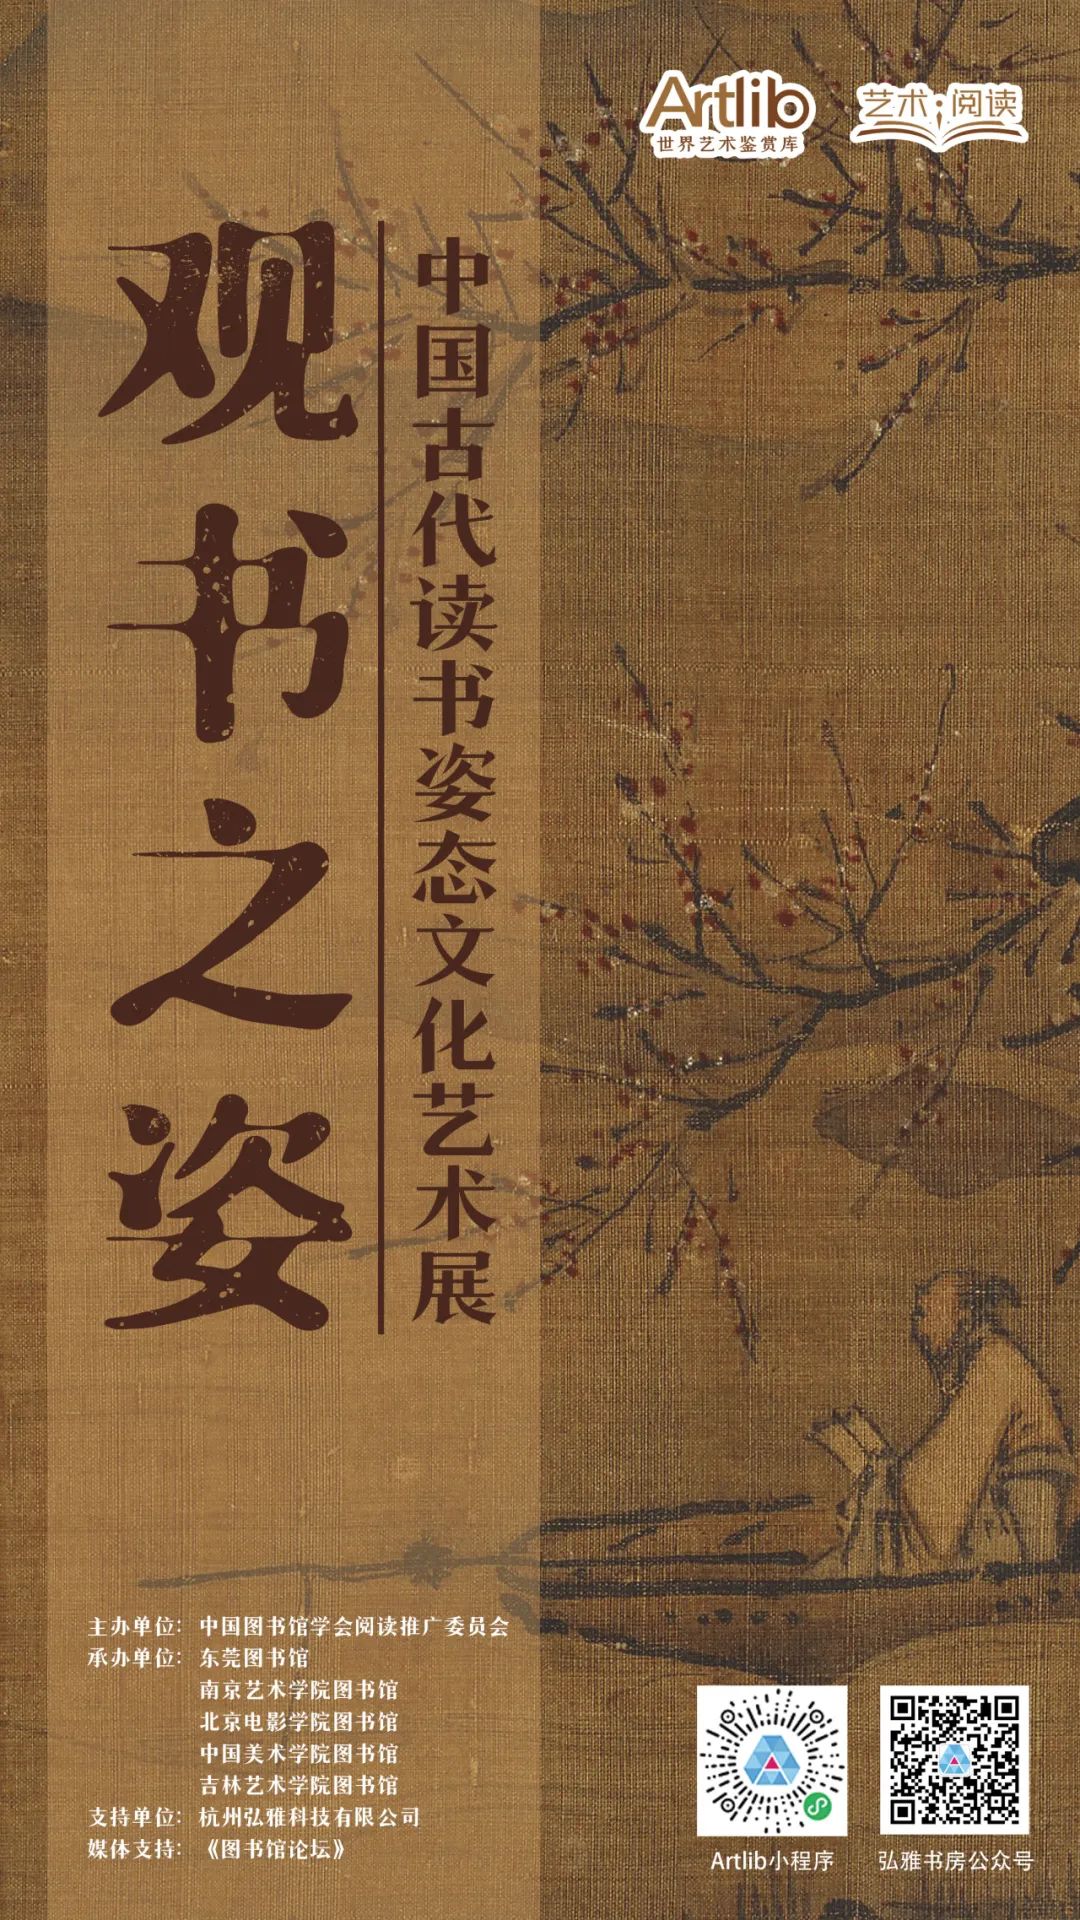 Artlib
世界艺术鉴赏库
艺术·阅读
观书之姿
中国古代读书姿态文化艺术展
主办单位：中国图书馆学会阅读推广委员会
承办单位：东莞图书馆
南京艺术学院图书馆
北京电影学院图书馆
中国美术学院图书馆
吉林艺术学院图书馆
支持单位：杭州弘雅科技有限公司
媒体支持：《图书馆论坛》
Artlib小程序
弘雅书房公众号